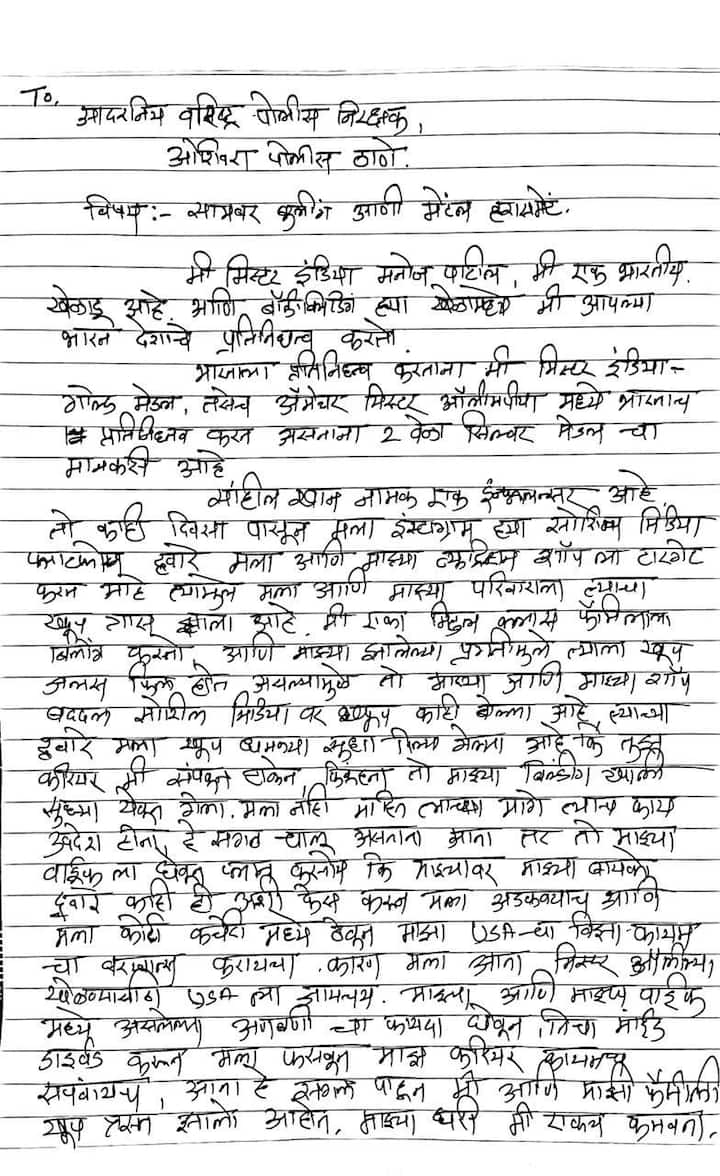 To,
आदरनिय वरिष्ठ पोलीस निरक्षक,
ओशिवरा पोलीस ठाणे.
विषय :- सायबर बुलींग आणी मेंटल हरासमेंट.
मी मिस्टर इंडिया मनोज पाटील, मी एक भारतीय
खेळाडू आहे. आणि बॉडीबिल्डिंग ह्या खेळामध्ये मी आपल्या
भारत देशाचे प्रतिनिधत्व करतो
भारताला प्रतिनिधत्व करताना मी मिस्टर इंडिया -
गोल्ड मेडल, तसेच अ‍ॅमेचर मिस्टर ऑलीमपीया मध्ये भारताच
प्रतिनिधत्व करत असताना 2 वेळा सिल्वर मेडल चा
मानकरी आहे
साहील खान नामक एक इंन्फ्लुलन्सर आहे.
तो काही दिवसा पासून मला इंस्टाग्राम ह्या सोशिल मिडिया
प्लाटफोर्म द्ववारे मला आणि माझ्या न्युट्रिशन शॉप ला टारगेट
करत आहे त्यामुळे मला आणि माझ्या परिवाराला त्याचा
खूप त्रास झाला आहे. मी एका मिडल क्लास फॅमिलीला
बिलॉंग करतो, आणि माझ्या झालेल्या प्रगतीमुळे त्याला खूप
जलस फिल होत असल्यामुळे तो माझ्या आणि माझ्या शॉप
बददल सोशील मिडिया वर खूप काही बोल्ला आहे त्याच्या
द्ववारे मला खूप धमक्या सुध्दा दिल्या गेल्या आहे कि तुझ
करियर मी संपवून टाकेन, तो माझ्या बिल्डींग खाली
सुध्धा येवून गेला. मला नही माहित त्याच्या मागे त्याच काय
उद्देश होता, हे सगळ चालू असताना आता तर तो माझ्या
वाईफ ला घेवून प्लान करतोय कि माझ्यावर माझ्या बायको
द्ववारे काही ही अशी केस करुन मला अडकवायच आणि
मला कोर्ट कचेरी मध्ये ठेवून माझा USA-चा विझा कायम
चा करायचा. कारण मला आता मिस्टर ऑलंपिया
खेळण्यासाठी USA ला जायचय. माझ्या आणि माझ्या वाईफ
मध्ये असलेल्या अणबणी चा फायदा घेवून, तिचा माईंड
डाइवर्ड करून मला फसवून माझ करियर कायमच
संपवायच, आता हे सगळ पाहून मी आणि माझी फॅमिली
खूप त्रस्त झालो आहोत. माझ्या घरी मी एकच कमवता.